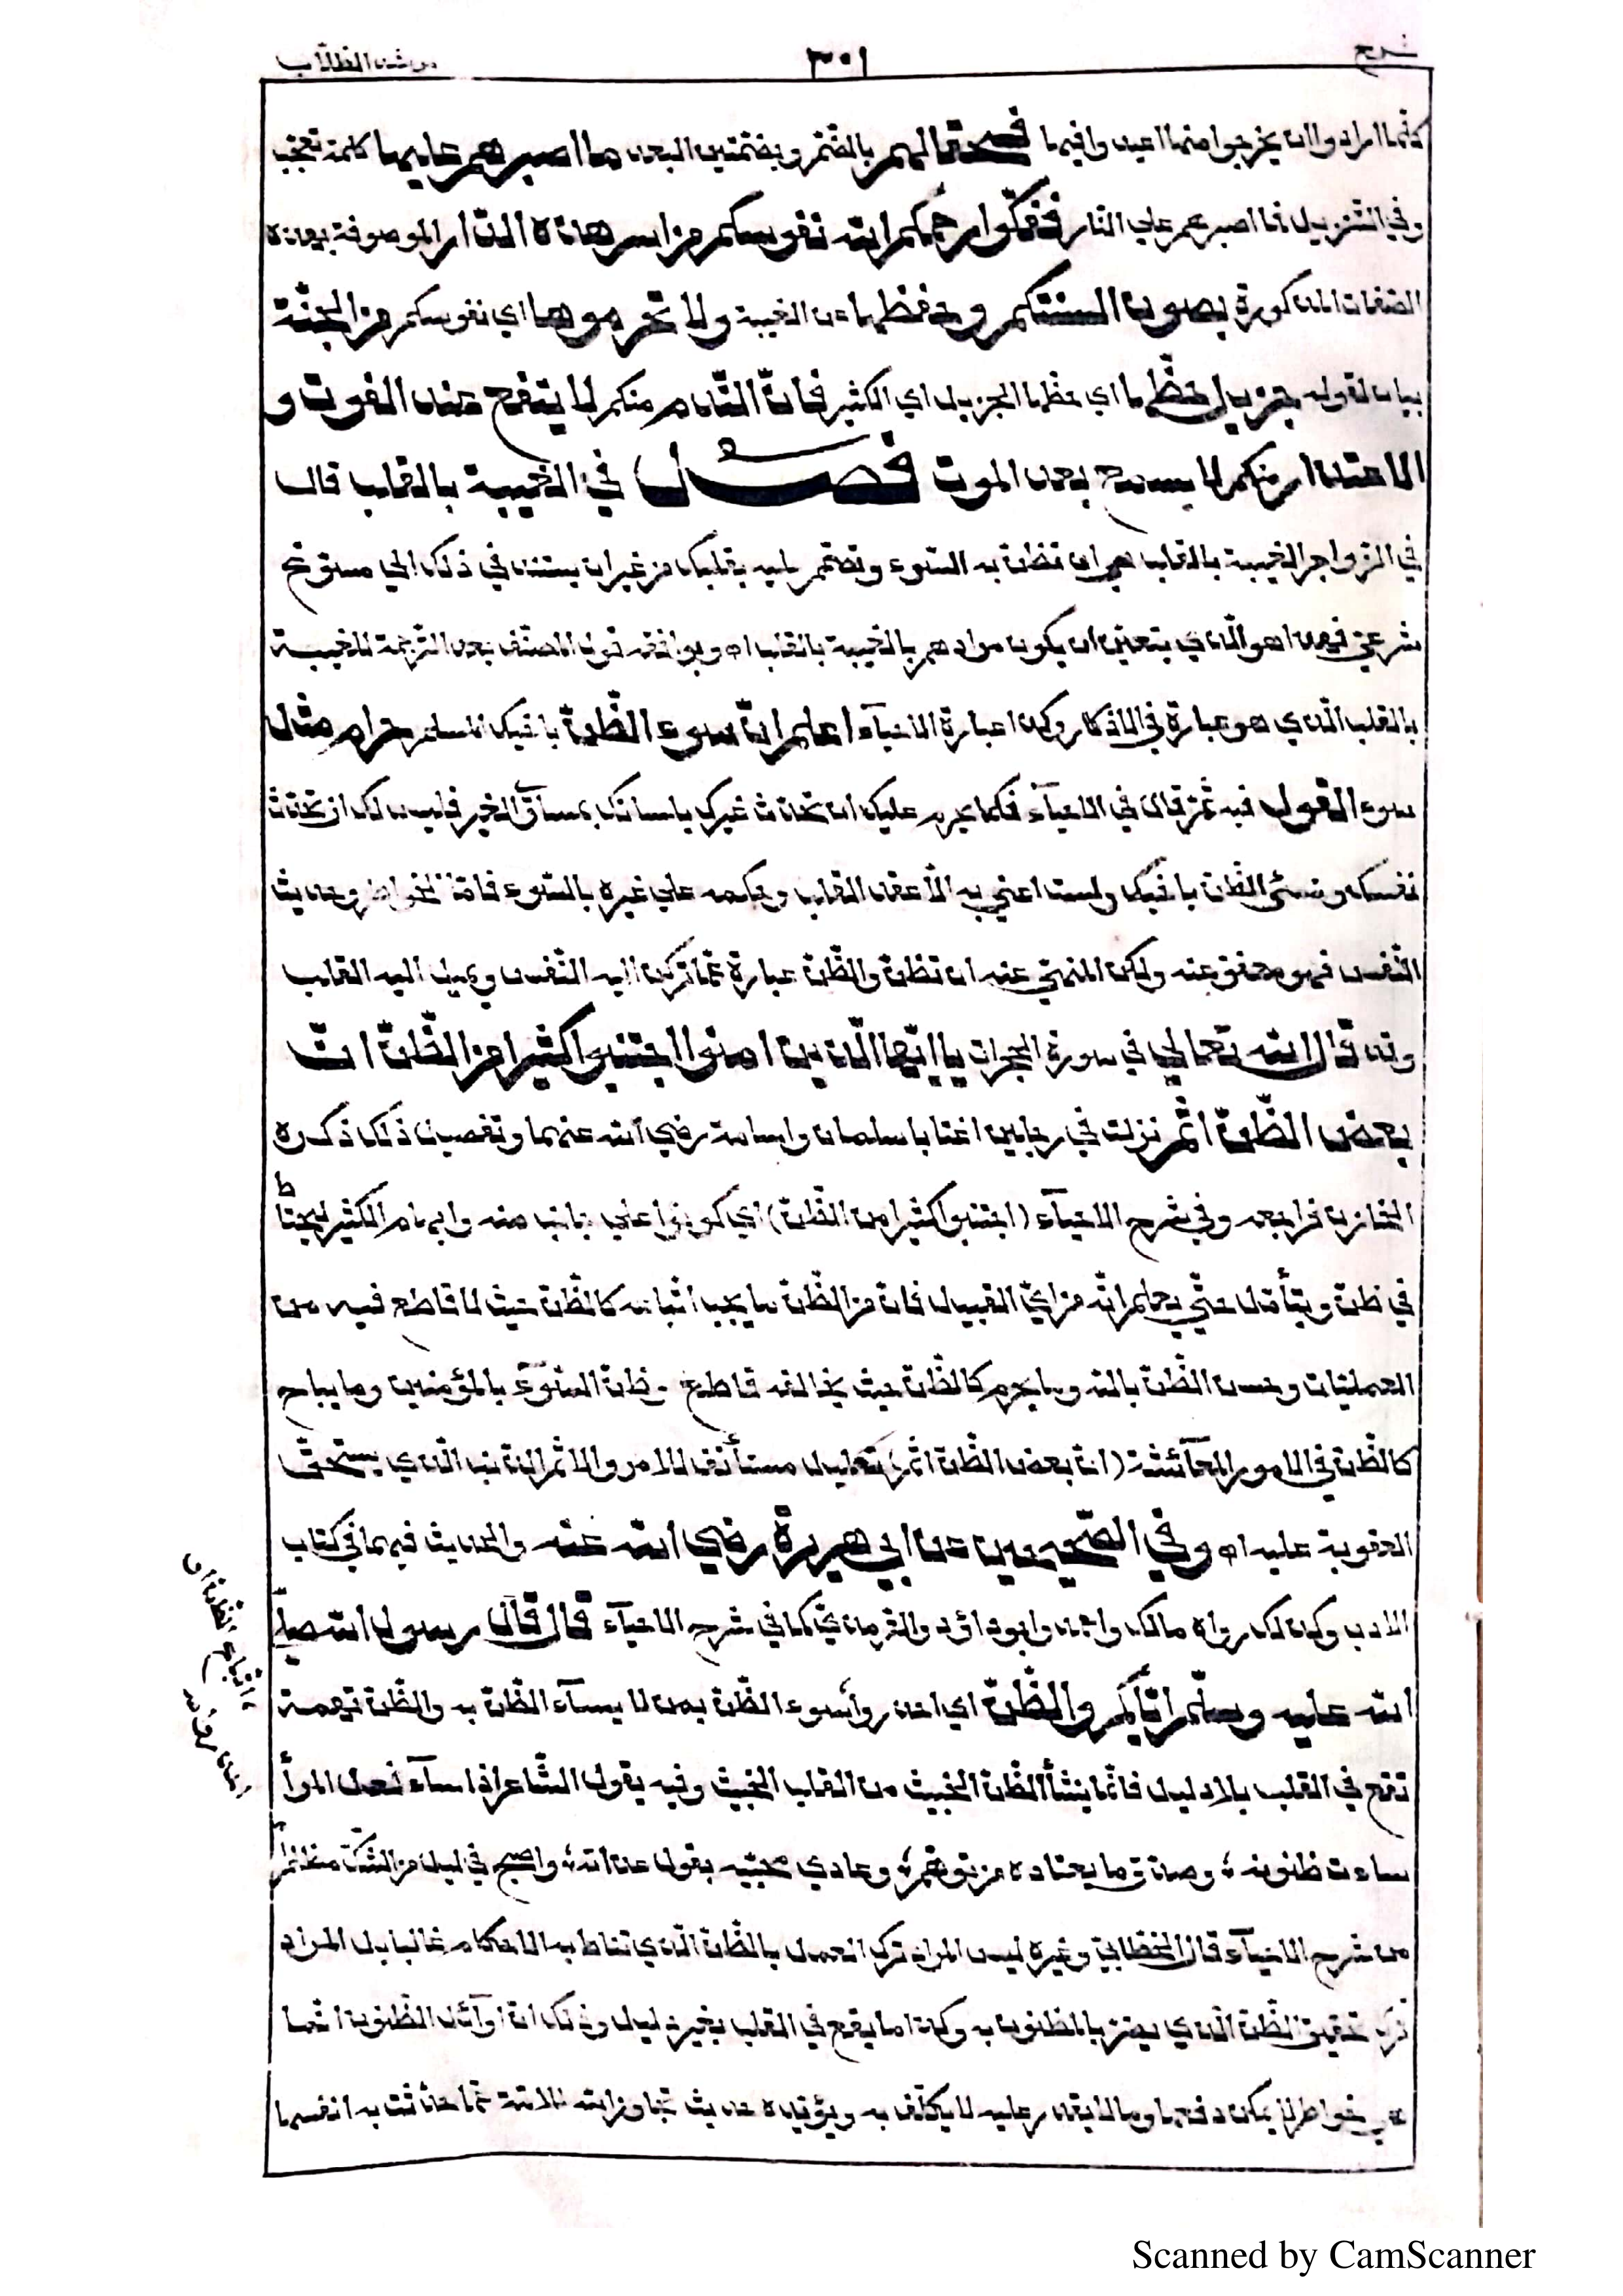 شرح ٣٠١ مرشد الطلاب
كلما ارادوا ان يخرجوا منها اعيدوا فيها فسحقا لهم بالضم وبضمتين البعد ما اصبرهم عليها كلمة تعجب
وفي التنزيل فما اصبرهم علي النار ففكوا رحمكم الله نفوسكم من اسر هذه النار الموصوفة بهذه
الصفات المذكورة بصون السنتكم وحفظها عن الغيبة ولا تحرموها اي نفوسكم من الجنة
بيان لقوله جزيل حظها اي حظها الجزيل اي الكثير فان الندم منكم لا ينفع عند الفوت و
الاعتذار منكم لا يسمع بعد الموت فصل في الغيبة بالقلب قال
في الزواجر الغيبة بالقلب هي ان تظن به السوء وتصمم عليه بقلبك من غير ان يستند في ذلك الي مسوغ
شرعي فهذا هو الذي يتعين ان يكون مرادهم بالغيبة بالقلب اه ويوافقه قول المصنف بعد الترجمة للغيبة
بالقلب الذي هو عبارة في الاذكار وكذا عبارة الاحيآء اعلم ان سوء الظن باخيك المسلم حرام مثل
سوء القول فيه ثم قال في الاحيآء فكما يحرم عليك ان تحدث غيرك بلسانك بمساوي الغير فليس لك ان تحدث
نفسك وتسئ الظن باخيك ولست اعني به الا عقد القلب وحكمه علي غيره بالسوء فاما الخواطر وحديث
النفس فهو معفو عنه ولكن المنهي عنه ان تظن والظن عبارة عما تركن اليه النفس ويميل اليه القلب
وقد قال الله تعالي في سورة الحجرات يا ايها الذين امنوا اجتنبوا كثيرا من الظن ان
بعض الظن اثم نزلت في رجلين اغتابا سلمان واسامة رضي الله عنهما وتفصيل ذلك ذكره
الخازن فراجعه وفي شرح الاحيآء (اجتنبوا كثيرا من الظن) اي كونوا علي جانب منه وابهام الكثير ليحتاط
في ظن ويتأمل حتي يعلم انه من اي القبيل فان من الظن ما يجب اتباعه كالظن حيث لا قاطع فيه من
العمليات وحسن الظن بالله وما يحرم كالظن حيث يخالفه قاطع وظن السوء بالمؤمنين وما يباح
كالظن في الامور المعآئشة (ان بعض الظن اثم) تعليل مستأنف للامر والاثم الذنب الذي يستحق
العقوبة عليه اه وفي الصحيحين عن ابي هريرة رضي الله عنه والحديث فيهما في كتاب
الادب وكذلك رواه مالك واحمد وابو داؤد والترمذي كما في شرح الاحيآء قال قال رسول الله صلي
الله عليه وسلم اياكم والظن اي احذروا سوء الظن بمن لا يسآء الظن به والظن تهمة
تقع في القلب بلا دليل فانما ينشأ الظن الخبيث من القلب الخبيث وفيه يقول الشاعر اذا سآء فعل المرأ
ساءت ظنونه ؛ وصدق ما يعتاده من توهم ؛ وعادي محبيه بقول عداته ؛ واصبح في ليل من الشك مظلم
من شرح الاحيآء قال الخطابي وغيره ليس المراد ترك العمل بالظن الذي تناط به الاحكام غالبا بل المراد
ترك تحقيق الظن الذي يضر بالمظنون به وكذا ما يقع في القلب بغير دليل وذلك ان اوآئل الظنون انما
هي خواطر لا يمكن دفعها وما لا يقدر عليه لا يكلف به ويؤيده حديث تجاوز الله للامة عما حدثت به انفسها
Scanned by CamScanner